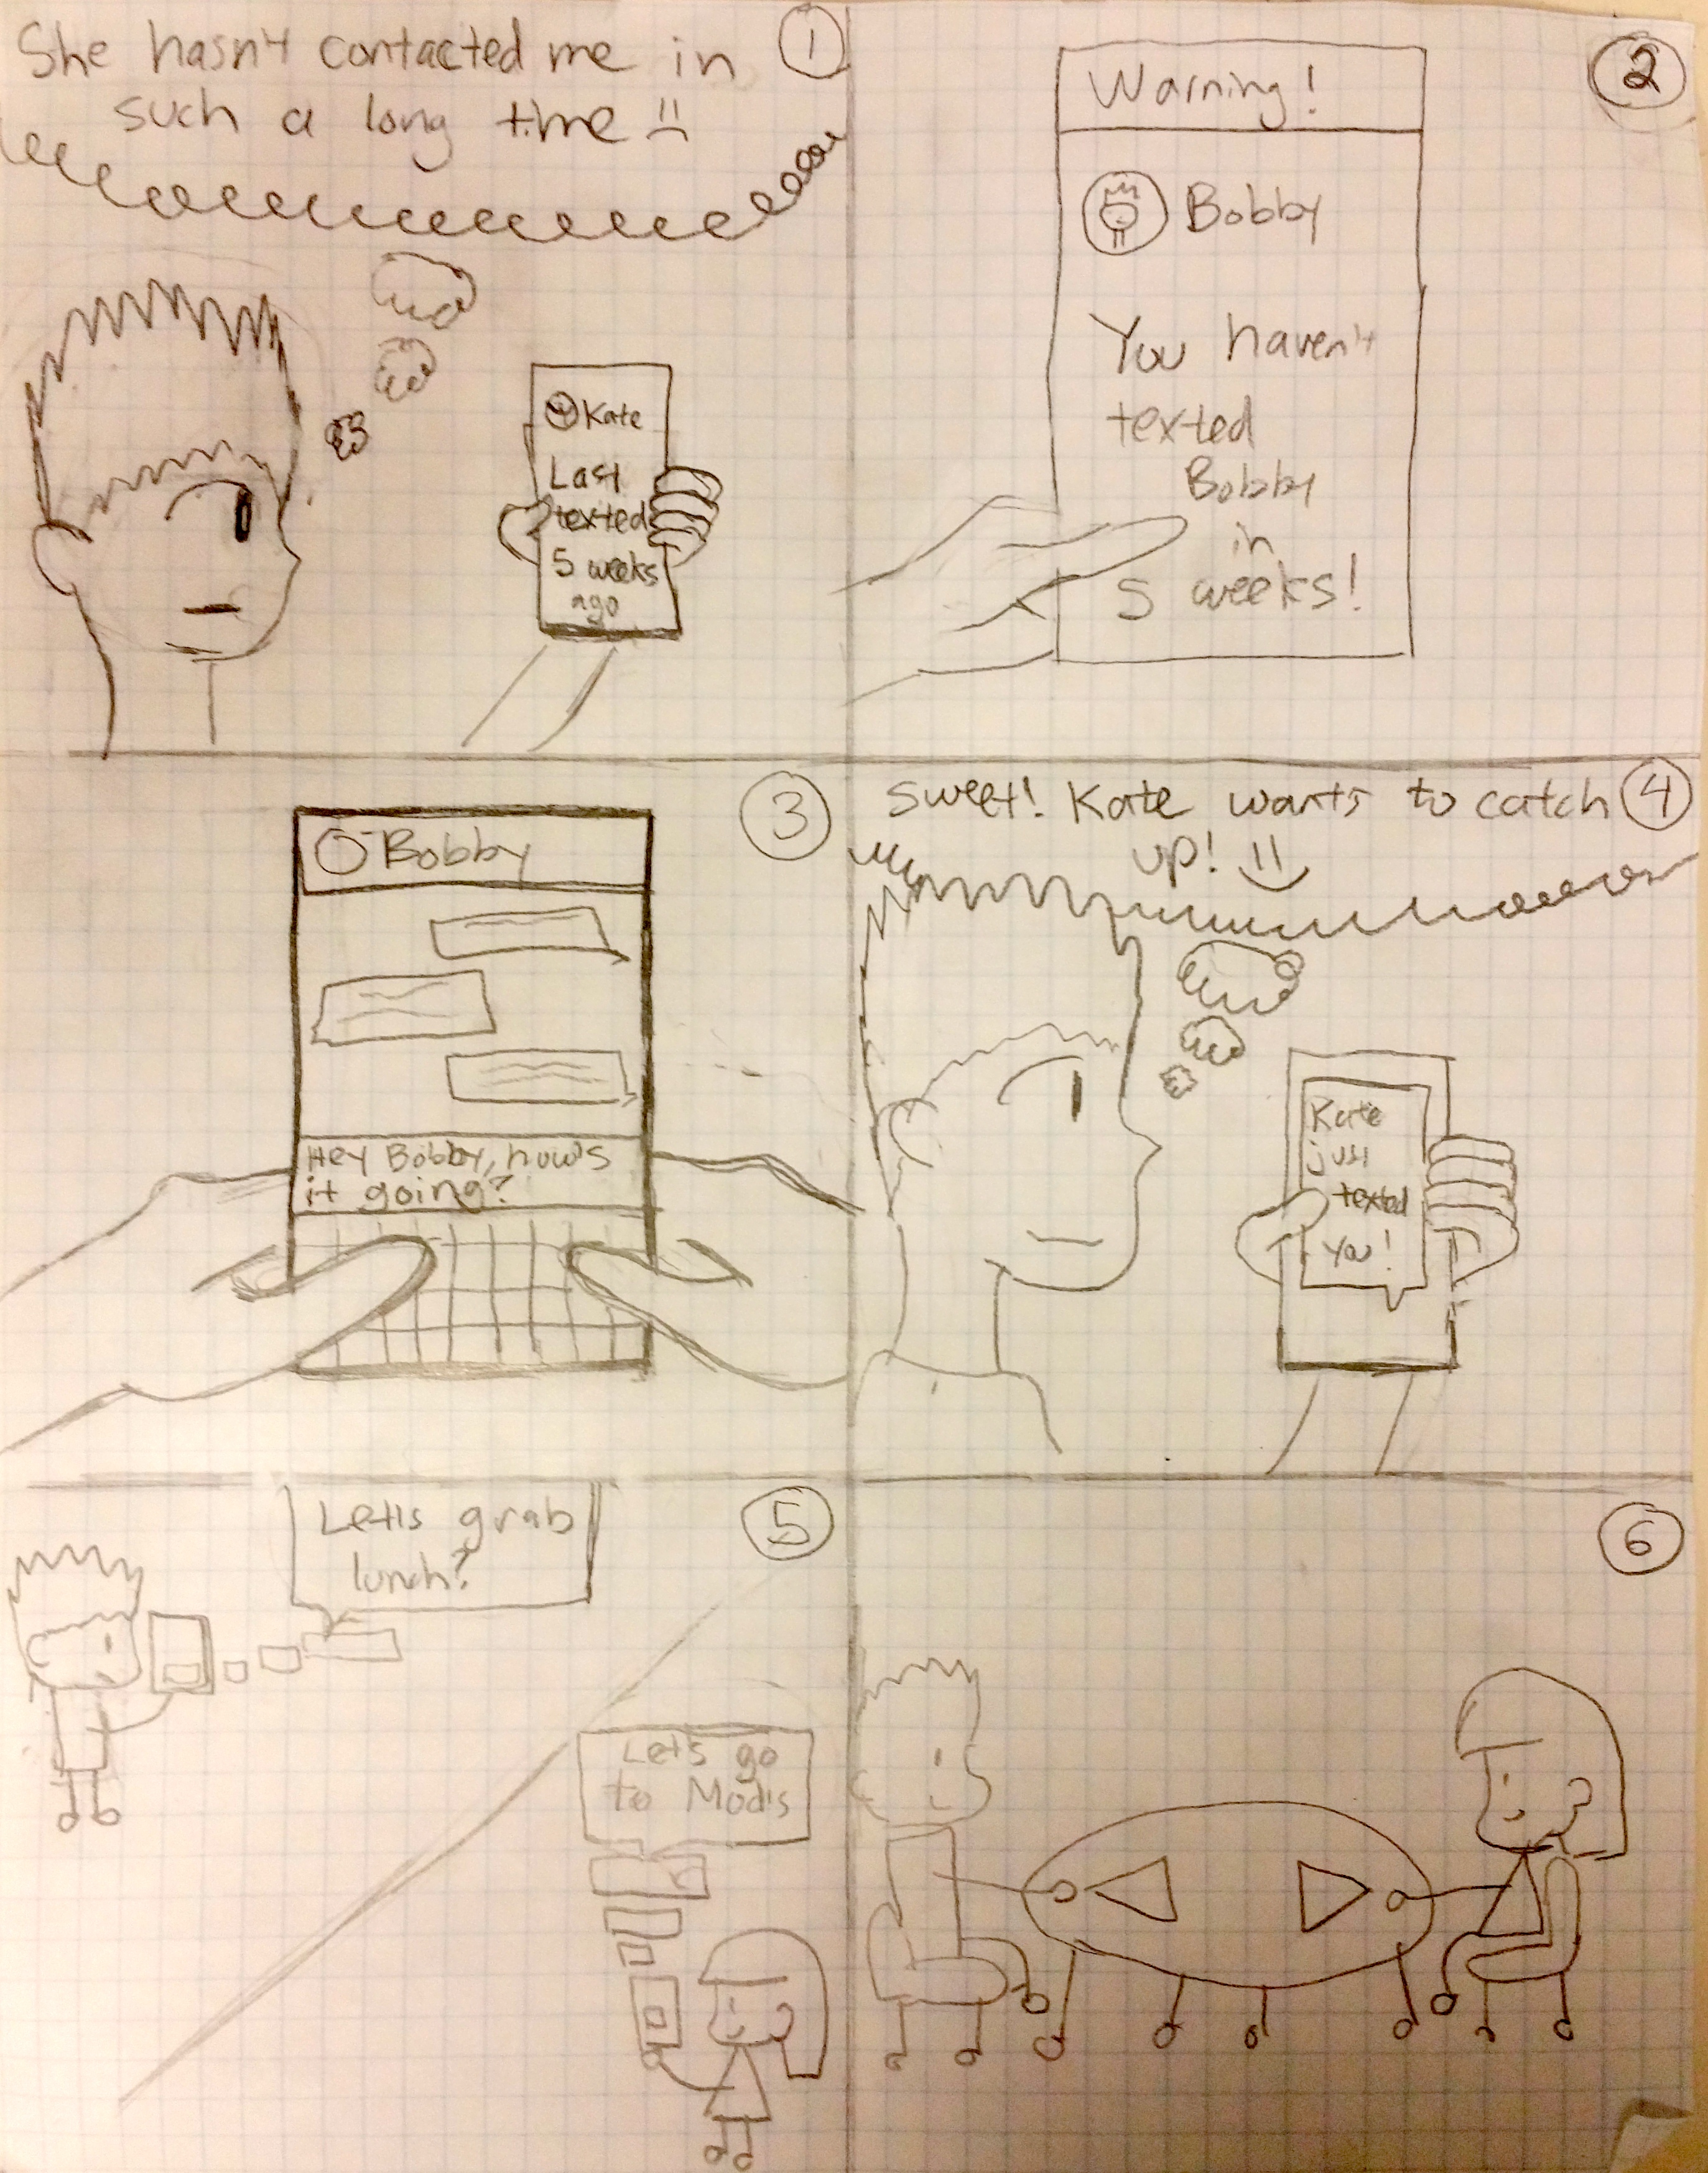 She hasn't contacted me in
such a long time
1
Kate
Last
texted
5 weeks
ago
2
Warning!
Bobby
You haven't
texted
Bobby
in
5 weeks!
3
Bobby
Hey Bobby, how's
it going?
4
Sweet! Kate wants to catch
up!
Kate
just
texted
you!
5
Let's grab
lunch?
Let's go
to Mod's
6